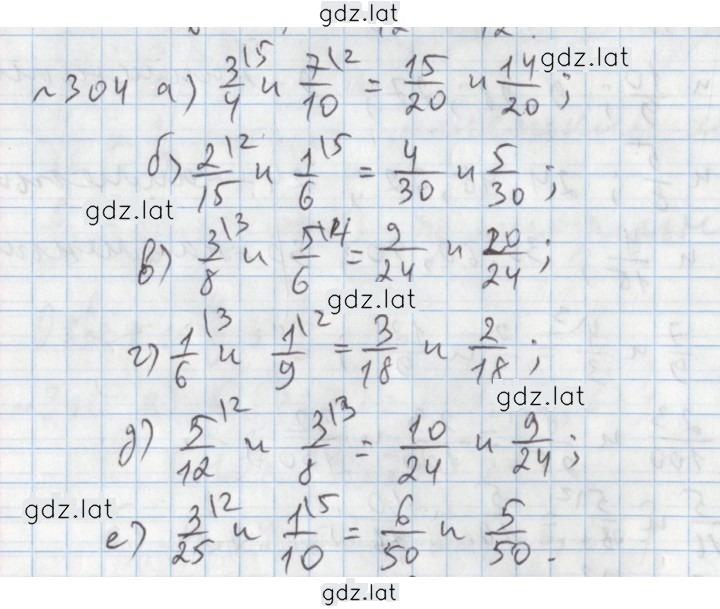 gdz.lat
№304 а) 3/4 \5 и 7/10 \2 = 15/20 и 14/20;
gdz.lat
б) 2/15 \2 и 1/6 \5 = 4/30 и 5/30;
gdz.lat
в) 3/8 \3 и 5/6 \4 = 9/24 и 20/24;
gdz.lat
г) 1/6 \3 и 1/9 \2 = 3/18 и 2/18;
gdz.lat
д) 5/12 \2 и 3/8 \3 = 10/24 и 9/24;
gdz.lat
е) 3/25 \2 и 1/10 \5 = 6/50 и 5/50.
gdz.lat